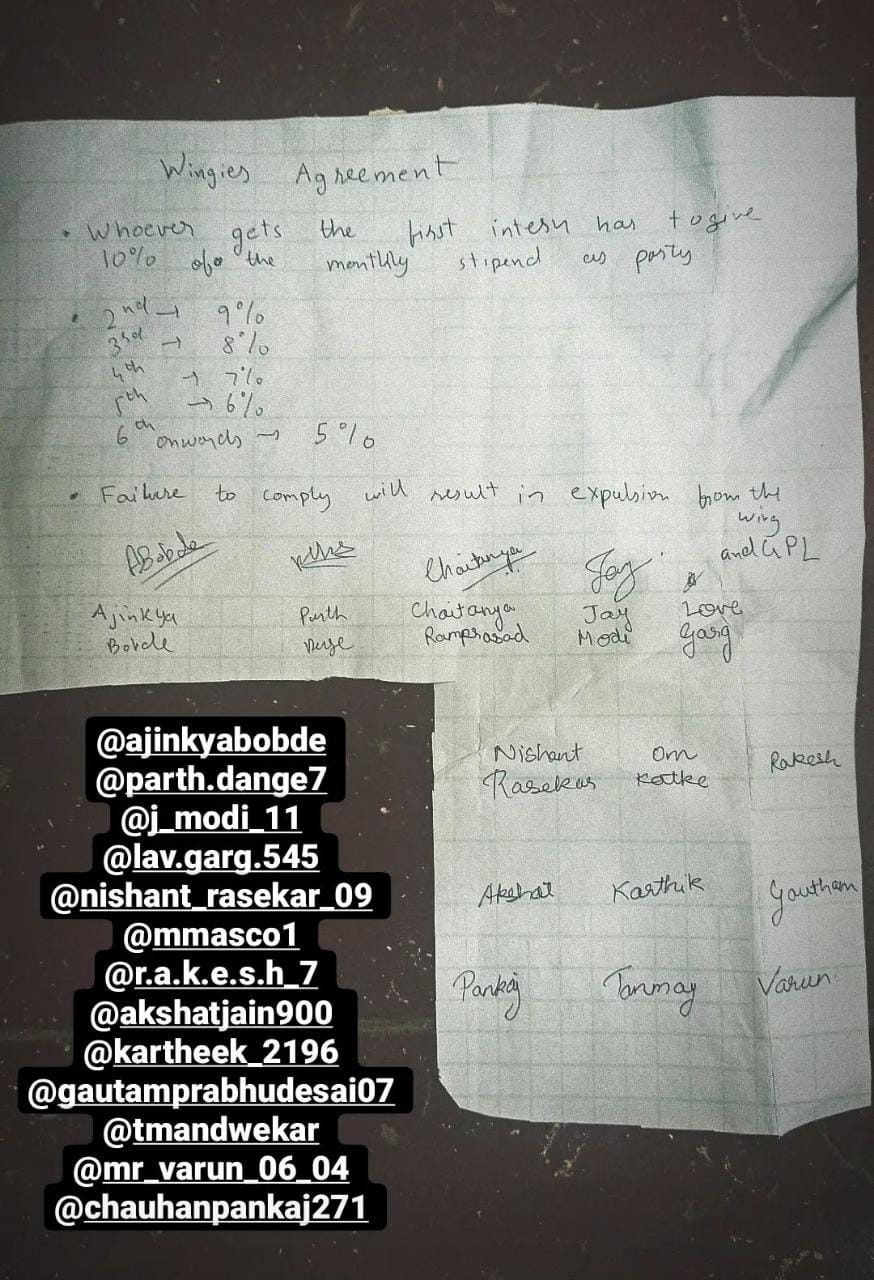 Wingies Agreement
• Whoever gets the first intern has to give
10% of the monthly stipend as party
• 2nd → 9%
3rd → 8%
4th → 7%
5th → 6%
6th onwards → 5%
• Failure to comply will result in expulsion from the
wing
and GPL
ABobde Chaitanya Jay
Ajinkya Parth Chaitanya Jay Love
Bobde Ramprasad Modi Garg
Nishant Om Rakesh
Rasekar Katke
Akshat Karthik Goutham
Pankaj Tanmay Varun
@ajinkyabobde
@parth.dange7
@j_modi_11
@lav.garg.545
@nishant_rasekar_09
@mmasco1
@r.a.k.e.s.h_7
@akshatjain900
@kartheek_2196
@gautamprabhudesai07
@tmandwekar
@mr_varun_06_04
@chauhanpankaj271